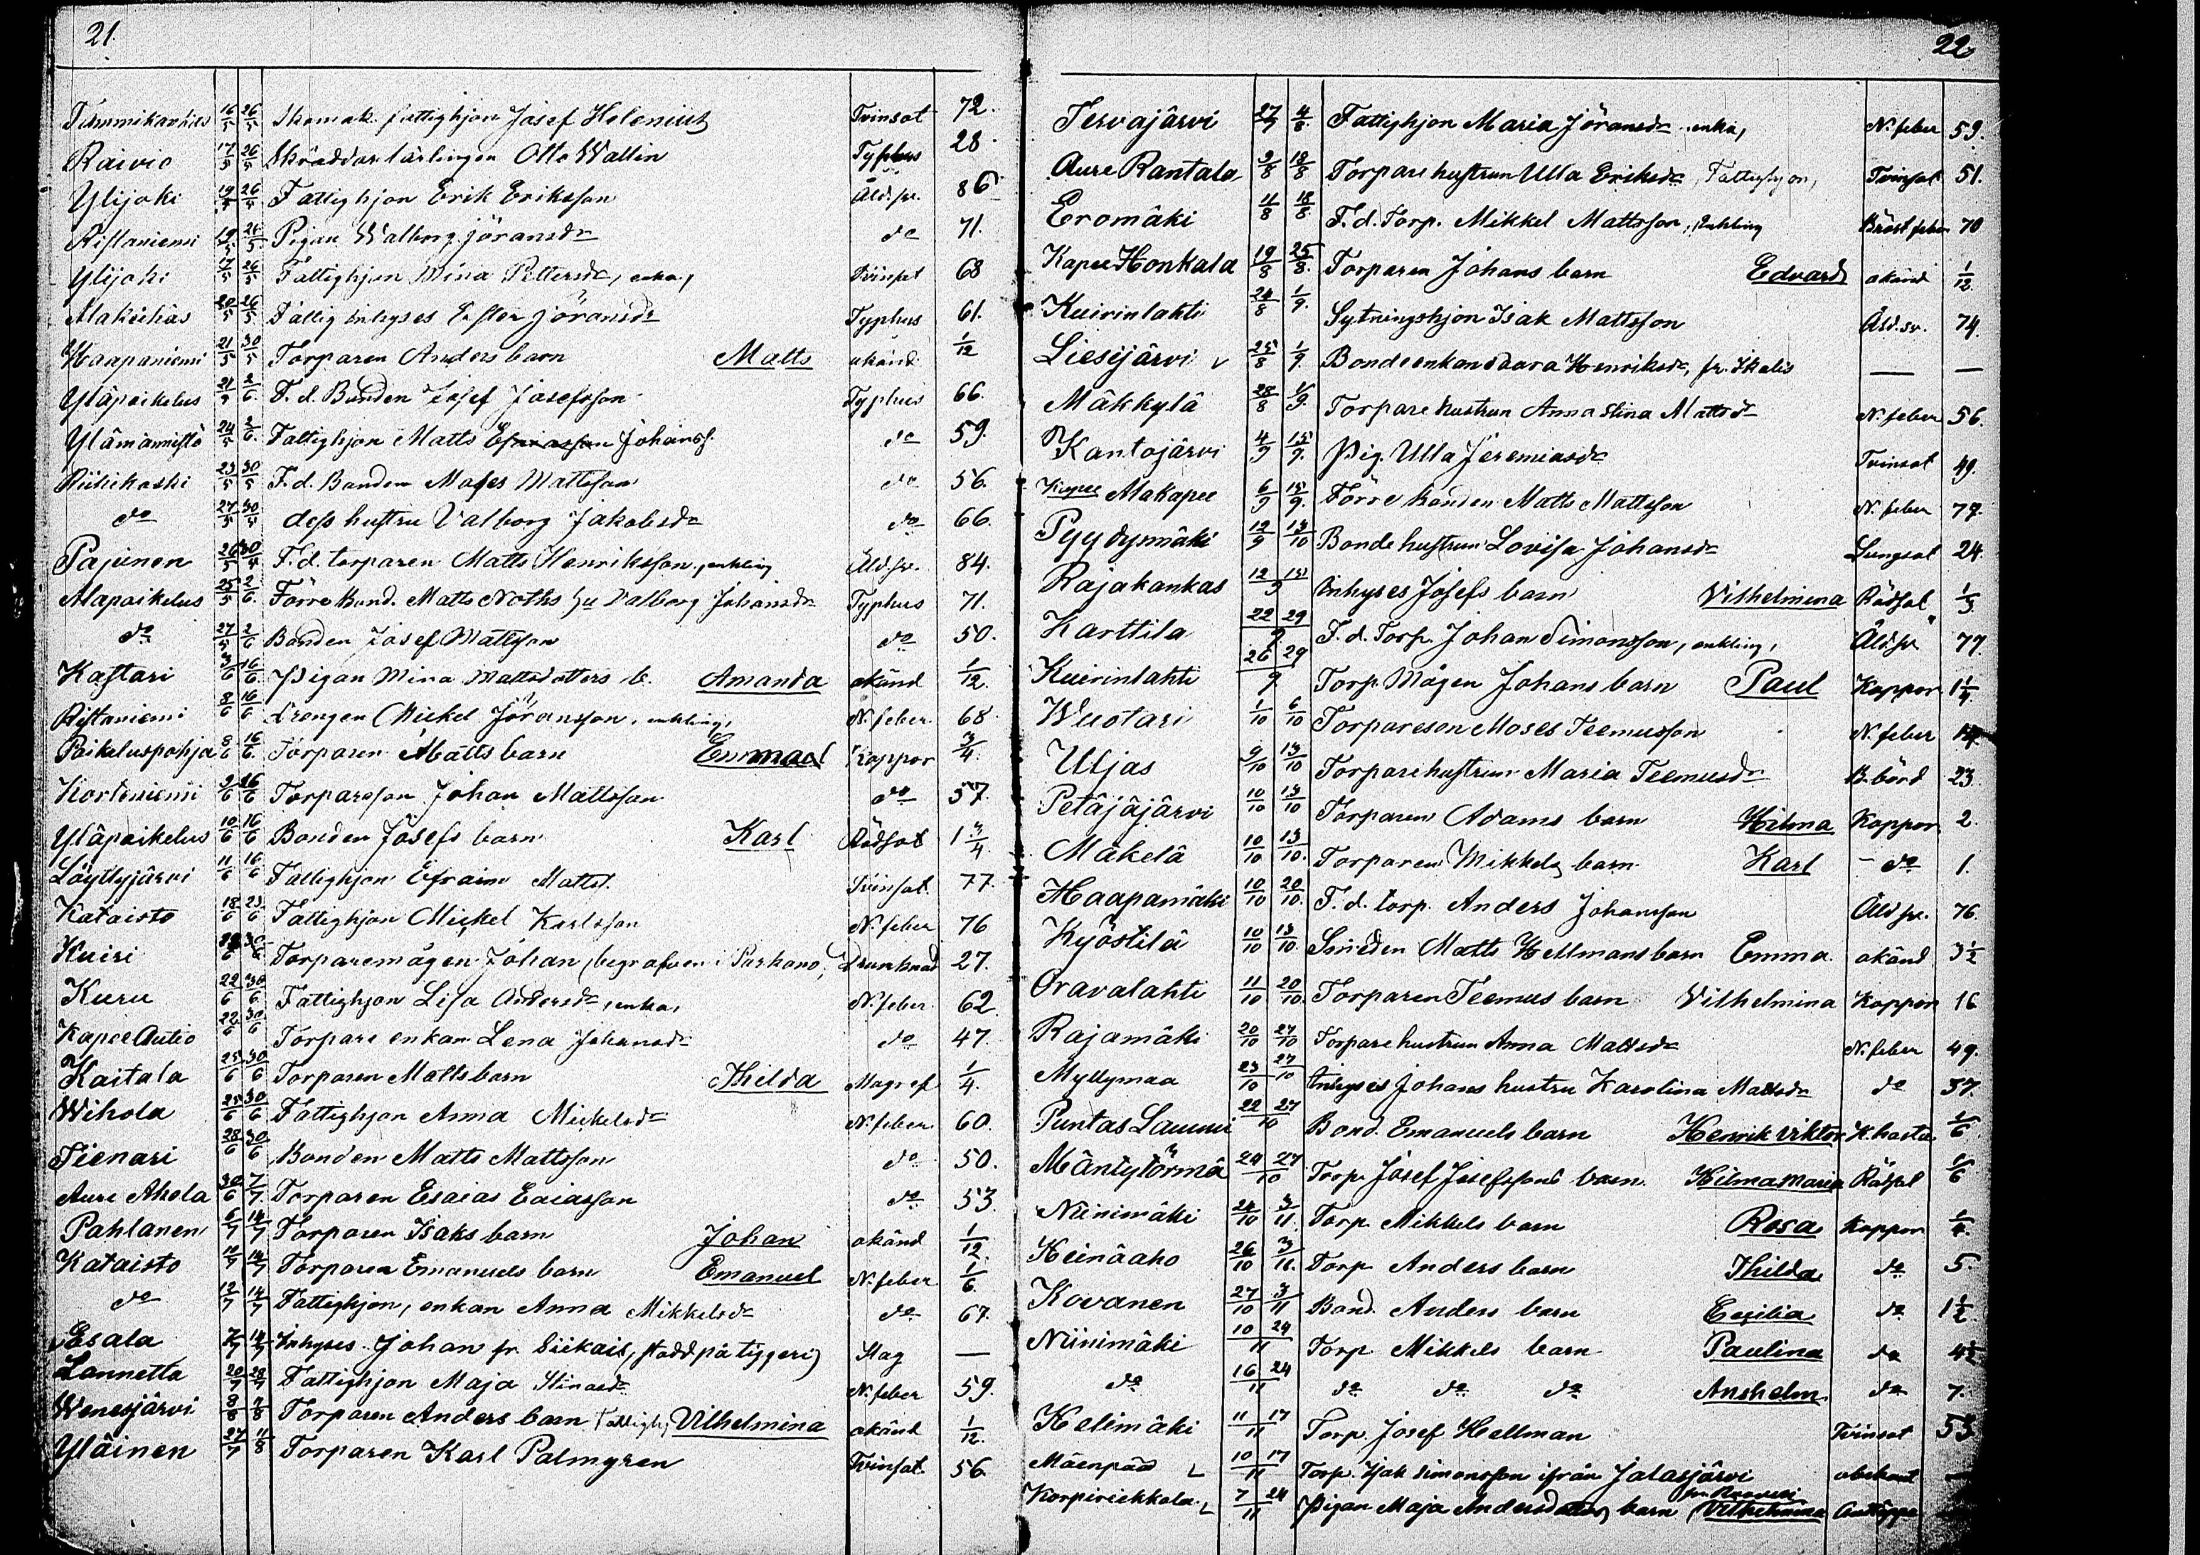 21.
16/5 26/5 Skomak. fattighjon Josef Helenius Tvinsot 72.
Raivio 17/5 26/5 Skräddar lärlingen Otto Wallin Typhus 28.
Ylijoki 19/5 26/5 Fattighjon Erik Eriksson Åld.sv. 86
Ristaniemi 19/5 26/5 Pigan Walborg Jöransdr do 71.
Ylijoki 17/5 26/5 Fattighjon Mina Pettersdr, enka, Tvinsot 68
20/5 26/5 Fattig inhyses Ester Jöransdr Typhus 61.
Haapaniemi 21/5 30/5 Torparen Anders barn Matts okänd 1/12
Yläpaikelus 21/5 2/6 F. d. Bonden Josef Josefsson Typhus 66.
Ylämännistö 24/5 2/6 Fattighjon Matts Johanss. do 59.
23/5 30/5 F. d. Bonden Moses Mattsson do 56.
do 27/5 30/5 dess hustru Valborg Jakobsdr do 66.
Pajunen 26/5 F. d. torparen Matts Henriksson, enkling Åld.sv. 84.
Alapaikelus 25/5 2/6 Förre Bond. Matts Noths hu Valborg Johansdr Typhus 71.
do 27/5 2/6 Bonden Josef Mattsson do 50.
Kastari 3/6 16/6 Pigan Mina Mattsdotters b. Amanda okänd 1/12.
Ristaniemi 8/6 16/6 Drengen Mickel Jöransson, enkling, N. feber 68.
Paikeluspohja 8/6 16/6 Torparen Matts barn Emma Koppor 3/4.
Kortesniemi 9/6 16/6 Torparsson Johan Mattsson do 57.
Yläpaikelus 10/6 16/6 Bonden Josefs barn Karl Rödsot 1 3/4
Löyttyjärvi 11/6 16/6 Fattighjon Efraim Mattss. Tvinsot 77.
Kataisto 18/6 23/6 Fattighjon Mickel Karlsson N. feber 76
Kuiri 30/6 Torparemågen Johan, begrafven i Parkano, Drunknad 27.
Kuru 22/6 30/6 Fattighjon Lisa Andersdr, enka, N. feber 62.
Kapee Autio 22/6 30/6 Torpare enkan Lena Johansdr do 47
Kaitala 25/6 30/6 Torparen Matts barn Thilda Mag ref 1/4.
Wihola 25/6 30/6 Fattighjon Anna Mickelsdr N. feber 60.
Tienari 28/6 30/6 Bonden Matts Mattsson do 50.
Aure Ahola 30/6 7/7 Torparen Esaias Eaiasson do 53.
Pahlanen 6/7 14/7 Torparen Isaks barn Johan okänd 1/12.
Kataisto 14/7 Torparen Emanuels barn Emanuel N. feber 1/6.
do 12/7 14/7 Fattighjon, enkan Anna Mikkelsdr do 67.
Esala 7/7 14/7 Inhyses Johan fr. Siikais, stadd på tiggeri) Slag —
Lannetta 20/7 28/7 Fattighjon Maja Stinasdr N. feber 59.
Wenesjärvi 8/8 Torparen Anders barn Fattigh, Vilhelmina okänd 1/12.
Yläinen 27/7 11/8 Torparen Karl Palmgren Tvinsot. 56
22
Tervajärvi 27/7 4/8. Fattighjon Maria Jöransdr enka, N. feber 59.
Aure Rantala 9/8 18/8 Torpare hustrun Ulla Eriksdr, Fattighjon, Tvinsot 51.
Eromäki 11/8 18/8 F. d. Torp. Mikkel Mattsson, Enkling Bröst feber 70
Kapee Honkala 19/8 25/8. Torparen Johans barn Edvard okänd 1/12.
Kuivinlahti 24/8 1/9. Sytningshjon Isak Mattsson Åld.sv. 74.
Liesijärvi 25/8 1/9. Bondeenkan Saara Henriksdr, fr. Ikalis — —
Mäkkylä 28/8 1/9. Torpare hustrun Anna Stina Mattsdr N. feber 56.
Kantojärvi 4/9 15/9. Pig. Ulla Jeremiasdr Tvinsot 49.
Kapee Alakapee 6/9 15/9. Förre bonden Matts Mattsson N. feber 77.
Pyydysmäki 12/9 13/10 Bonde hustrun Lovisa Johansdr Lungsot 24.
Rajakankas 12 15/9 Inhyses Josefs barn Vilhelmina Rödsot 1/3
Karttila 22 29/9 F. d. Torp. Johan Simonsson, enkling, Åld.sv 77.
Kuivinlahti 26 29/9 Torp. Mågen Johans barn Paul Koppor 1 1/4.
Wuotari 1/10 6/10 Torpareson Moses Teemusson N. feber
Uljas 9/10 13/10 Torpare hustrun Maria Teemusdr B. börd 23.
Petäjäjärvi 10/10 13/10 Torparen Adams barn Hilma Koppor 2.
Mäkelä 10/10 13/10. Torparen Mikkels barn Karl do 1.
Haapamäki 10/10 20/10. F. d. torp. Anders Johansson Åld sv. 76.
Kyöstilä 10/10 13/10. Smeden Matts Hellmans barn Emma. okänd 3 1/2
Oravalahti 11/10 20/10. Torparen Teemus barn Vilhelmina Koppor 16
Rajamäki 20/10 27/10 Torpare hustrun Anna Mattsdr N. feber 49.
Myllymaa 23/10 27/10 Inhyses Johans hustru Karolina Mattsdr do 37.
Puntas Laurui 22 27/10 Bond. Emanuels barn Henrik Viktor K. hosta 1/6
Mäntytörmä 24 27/10 Torp. Josef Josefssons barn Hilma Maria Rödsot 1/6
Niinimäki 24/10 3/11. Torp. Mikkels barn Rosa Koppor 1/4.
Heinäaho 26/10 3/11. Torp. Anders barn Thilda do 5.
Kovanen 27/10 3/11 Bond. Anders barn Cecilia do 1 1/2.
Niinimäki 10 24/11 Torp. Mikkels barn Paulina do 4 1/2
do 16 24/11 do do do Anshelm do 7.
Kelimäki 11 17/11 Torp. Josef Hellman Tvinsot 53
Mäenpää 10 17/11 Torp. Isak Simonsson ifrån Jalasjärvi obekant —
7 24/11 Pigan Maja Andersdotters barn Vilhelmina